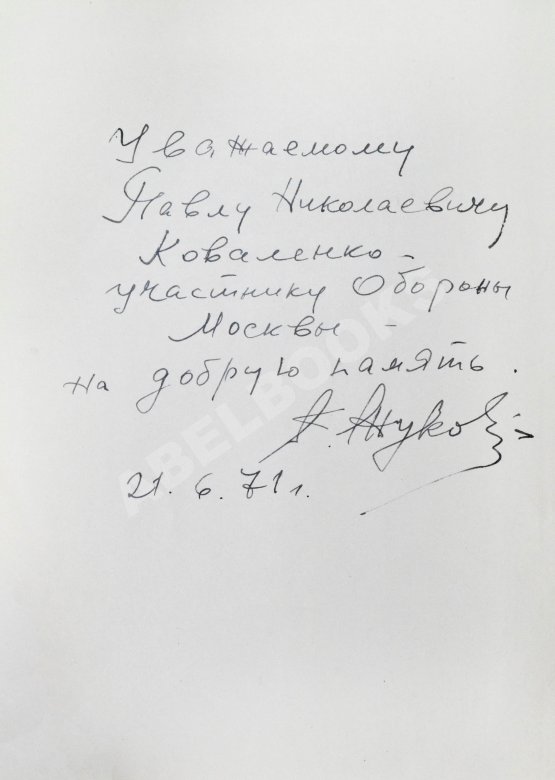 Уважаемому
Павлу Николаевичу
Коваленко –
участнику Обороны
Москвы –
на добрую память.
Г. Жуков
21. 6. 71 г.
ABELBOOKS